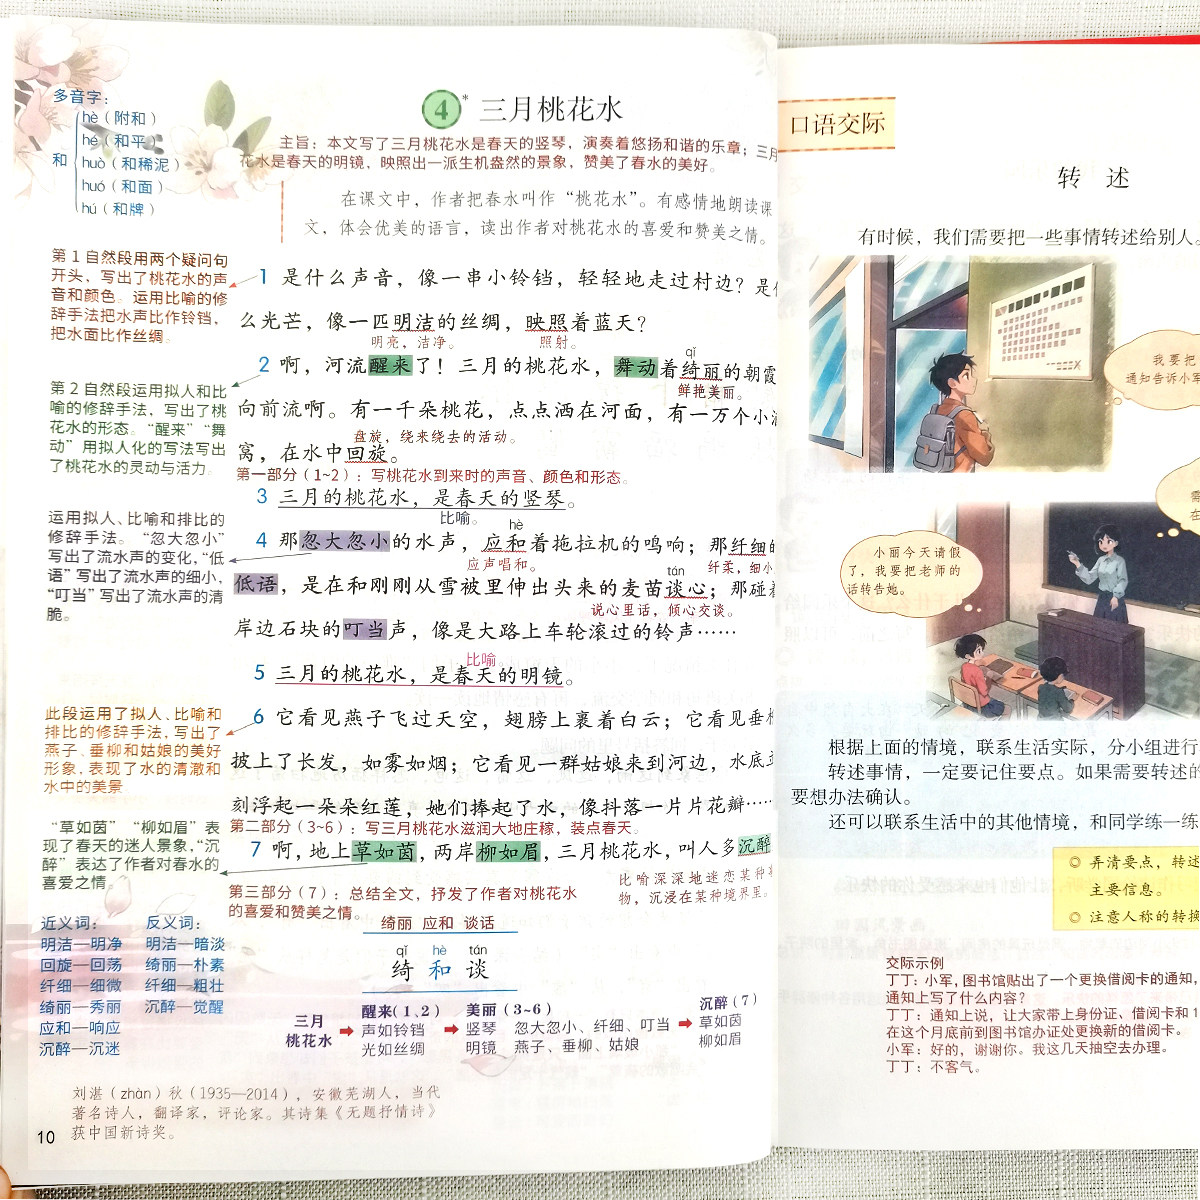 多音字：
hè（附和）
hé（和平）
和 huò（和稀泥）
huó（和面）
hú（和牌）
4* 三月桃花水
主旨：本文写了三月桃花水是春天的竖琴，演奏着悠扬和谐的乐章；三月
花水是春天的明镜，映照出一派生机盎然的景象，赞美了春水的美好。
在课文中，作者把春水叫作“桃花水”。有感情地朗读课
文，体会优美的语言，读出作者对桃花水的喜爱和赞美之情。
第1自然段用两个疑问句
开头，写出了桃花水的声
音和颜色。运用比喻的修
辞手法把水声比作铃铛，
把水面比作丝绸。
1 是什么声音，像一串小铃铛，轻轻地走过村边？是什
么光芒，像一匹明洁的丝绸，映照着蓝天？
明亮，洁净。 照射。
第2自然段运用拟人和比
喻的修辞手法，写出了桃
花水的形态。“醒来”“舞
动”用拟人化的写法写出
了桃花水的灵动与活力。
qǐ
2 啊，河流醒来了！三月的桃花水，舞动着绮丽的朝霞
鲜艳美丽。
向前流啊。有一千朵桃花，点点洒在河面，有一万个小
盘旋，绕来绕去的活动。
窝，在水中回旋。
第一部分（1~2）：写桃花水到来时的声音、颜色和形态。
3 三月的桃花水，是春天的竖琴。
比喻。
运用拟人、比喻和排比的
修辞手法。“忽大忽小”
写出了流水声的变化，“低
语”写出了流水声的细小，
“叮当”写出了流水声的清
脆。
hè
4 那忽大忽小的水声，应和着拖拉机的鸣响；那纤细的
应声唱和。 纤柔，细小
tán
低语，是在和刚刚从雪被里伸出头来的麦苗谈心；那碰着
说心里话，倾心交谈。
岸边石块的叮当声，像是大路上车轮滚过的铃声……
比喻
5 三月的桃花水，是春天的明镜。
此段运用了拟人、比喻和
排比的修辞手法，写出了
燕子、垂柳和姑娘的美好
形象，表现了水的清澈和
水中的美景
6 它看见燕子飞过天空，翅膀上裹着白云；它看见垂柳
披上了长发，如雾如烟；它看见一群姑娘来到河边，水底立
刻浮起一朵朵红莲，她们捧起了水，像抖落一片片花瓣……
第二部分（3~6）：写三月桃花水滋润大地庄稼，装点春天。
“草如茵”“柳如眉”表
现了春天的迷人景象，“沉
醉”表达了作者对春水的
喜爱之情。
7 啊，地上草如茵，两岸柳如眉，三月桃花水，叫人多沉醉
比喻深深地迷恋某种事
物，沉浸在某种境界里。
第三部分（7）：总结全文，抒发了作者对桃花水
的喜爱和赞美之情。
近义词：
明洁—明净
回旋—回荡
纤细—细微
绮丽—秀丽
应和—响应
沉醉—沉迷
反义词：
明洁—暗淡
绮丽—朴素
纤细—粗壮
沉醉—觉醒
绮丽 应和 谈话
qǐ hè tán
绮 和 谈
三月
桃花水
醒来(1、2)
声如铃铛
光如丝绸
美丽(3~6)
竖琴 忽大忽小、纤细、叮当
明镜 燕子、垂柳、姑娘
沉醉(7)
草如茵
柳如眉
刘湛（zhàn）秋（1935—2014），安徽芜湖人，当代
著名诗人，翻译家，评论家。其诗集《无题抒情诗》
获中国新诗奖。
10
口语交际
转 述
有时候，我们需要把一些事情转述给别人。
我要把
通知告诉小军
小丽今天请假
了，我要把老师的
话转告她。
需
在
根据上面的情境，联系生活实际，分小组进行
转述事情，一定要记住要点。如果需要转述的
要想办法确认。
还可以联系生活中的其他情境，和同学练一练
◎ 弄清要点，转述
主要信息。
◎ 注意人称的转换
交际示例
丁丁：小军，图书馆贴出了一个更换借阅卡的通知，
通知上写了什么内容？
丁丁：通知上说，让大家带上身份证、借阅卡和1
在这个月底前到图书馆办证处更换新的借阅卡。
小军：好的，谢谢你。我这几天抽空去办理。
丁丁：不客气。